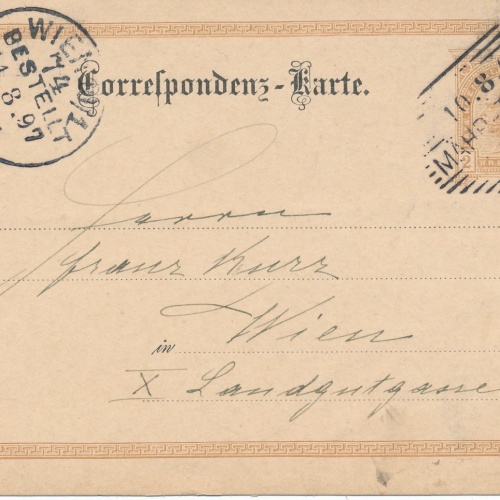 WIEN
BESTELLT
8.97
Correspondenz-Karte.
10.8
2
Herrn
Franz Kurz
Wien
in
X Landgutgasse